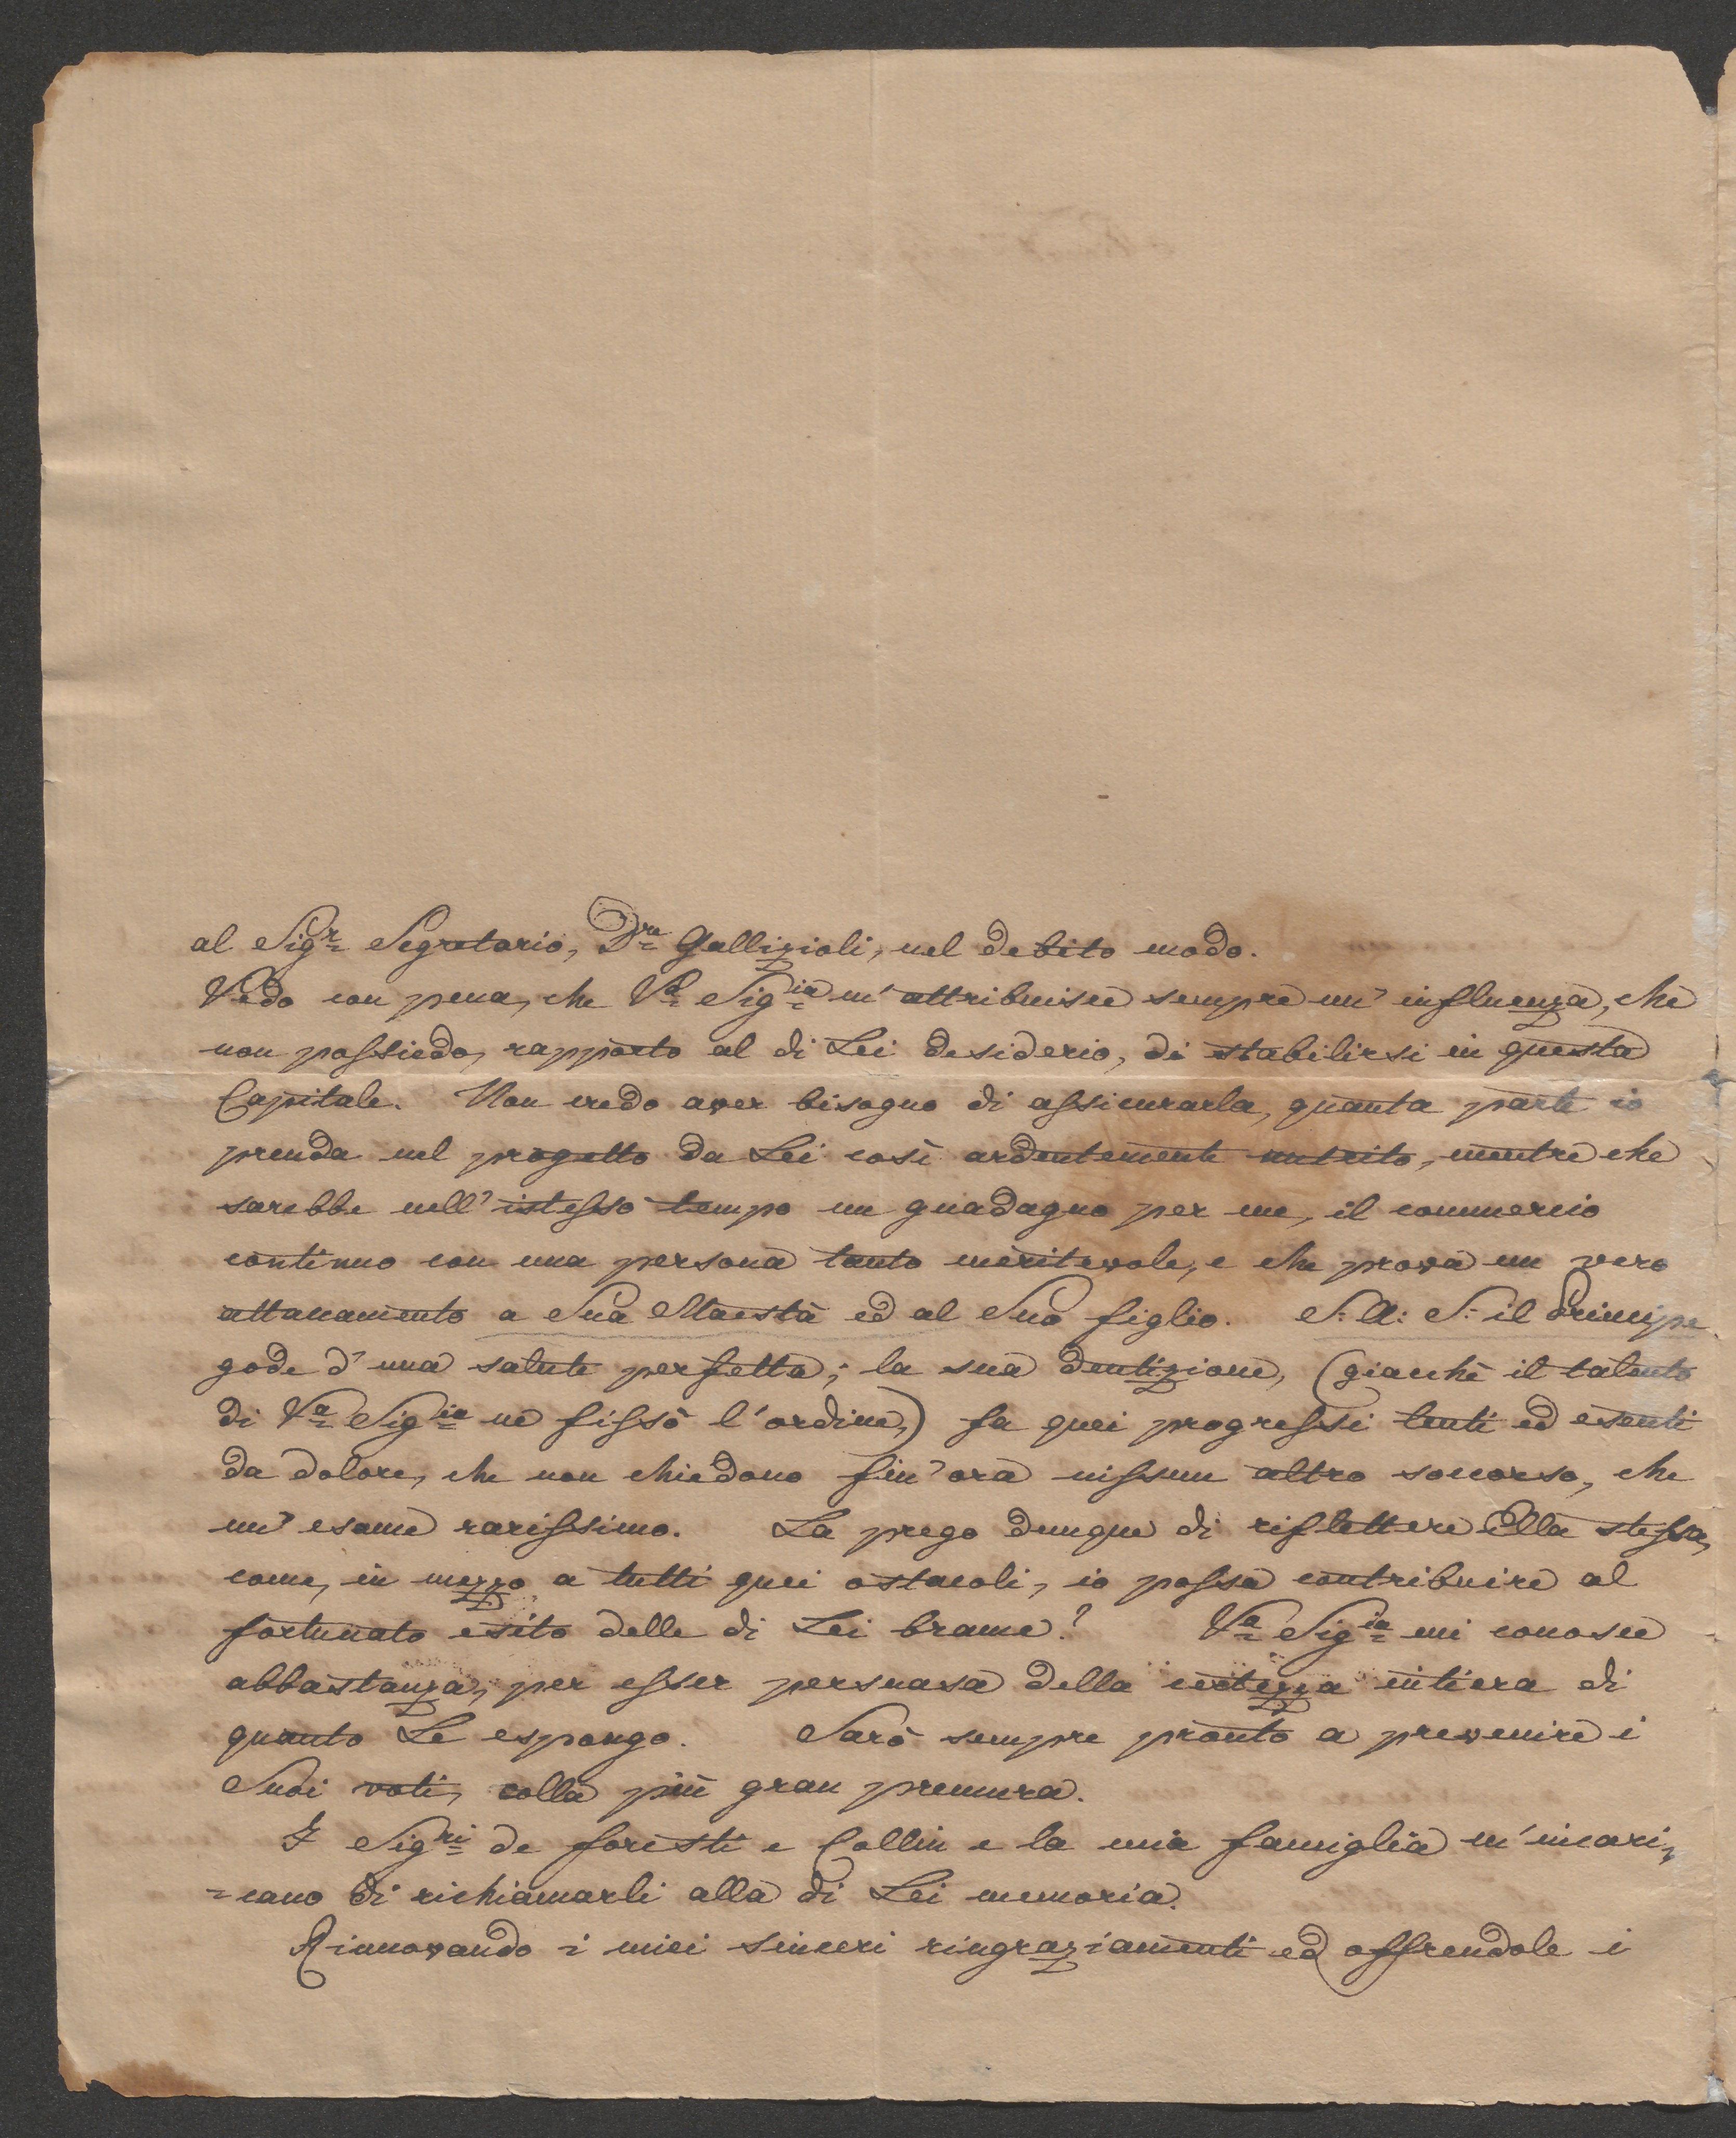 al Sigr Segretario, Dre Gallizioli, nel debito modo.
Vedo con pena, che Va Sigia m'attribuisce sempre un' influenza, che
non possiedo, rapporto al di Lei desiderio, di stabilirsi in questa
Capitale. Non credo aver bisogno di assicurarla, quanta parte io
prenda nel progetto da Lei così ardentemente nutrito, mentre che
sarebbe nell' istesso tempo un guadagno per me, il commercio
continuo con una persona tanto meritevole, e che prova un vero
attacamento a Sua Maestà ed al Suo figlio. S: A: S: il Principe
gode d' una salute perfetta; la sua dentizione, (giacchè il talento
di Va Sigia ne fissò l'ordine,) fa quei progressi lenti ed esenti
da dolore, che non chiedono fin' ora nissun altro soccorso, che
un' esame rarissimo. La prego dunque di riflettere Ella stessa,
come, in mezzo a tutti quei ostacoli, io possa contribuire al
fortunato esito delle di Lei brame? Va Sigia mi conosce
abbastanza, per esser persuasa della certezza intiera di
quanto Le espongo. Sarò sempre pronto a prevenire i
Suoi voti, colla più gran premura.
I Sigri de Foresti e Collin e la mia famiglia m'incari-
-cano di richiamarli alla di Lei memoria.
Rinnovando i miei sinceri ringraziamenti ed offrendole i